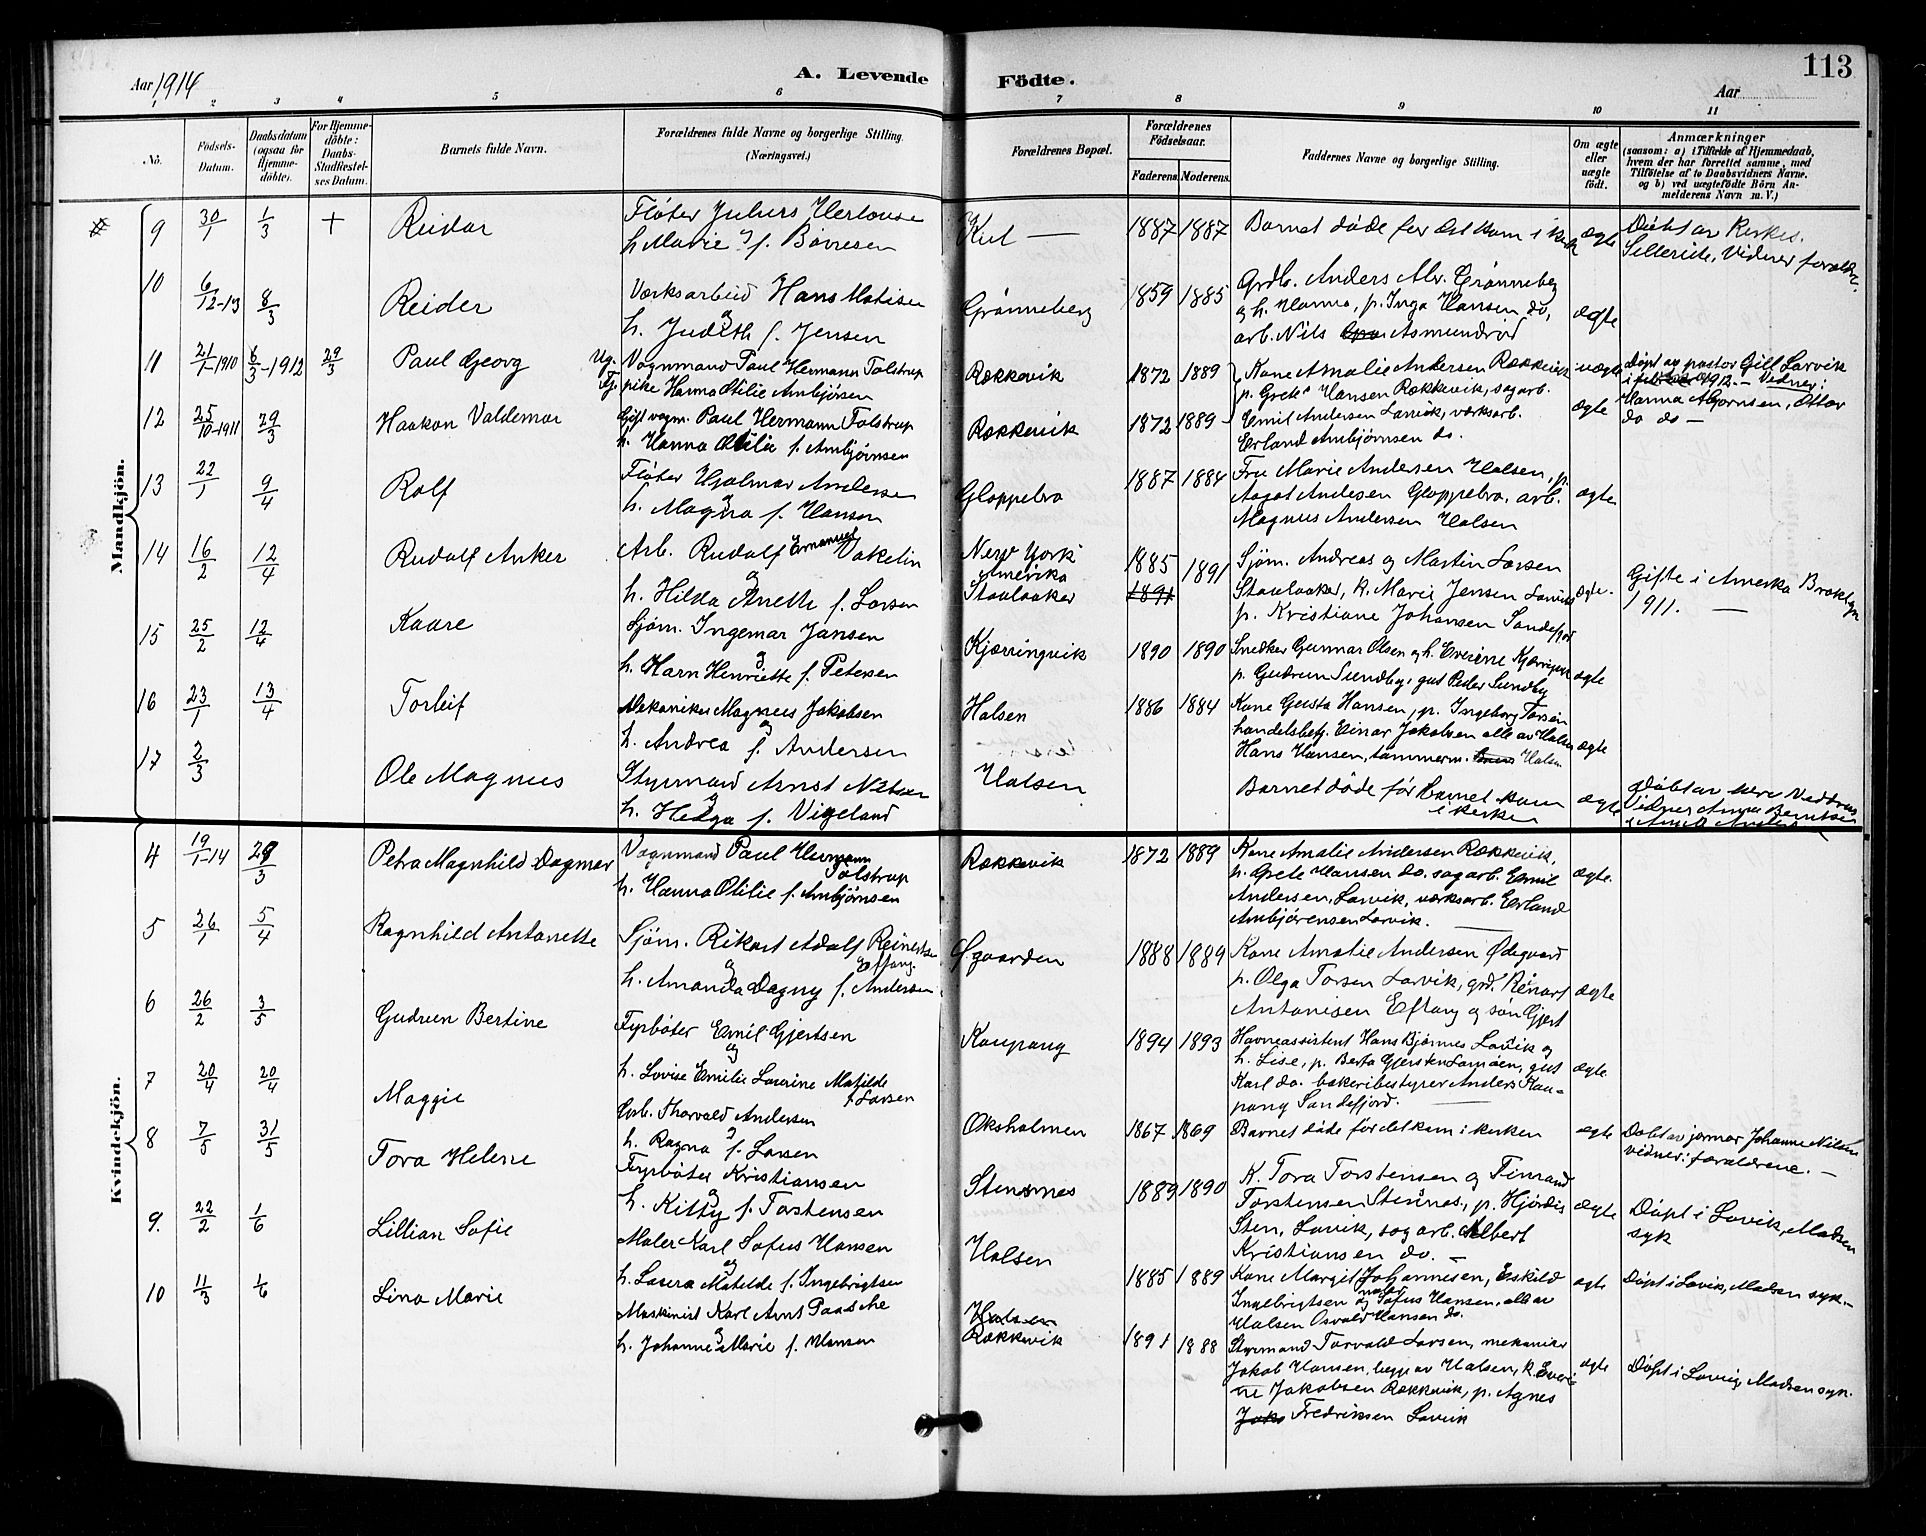 Aar 1914
A. Levende Födte.
113
Aar
1 2 3 4 5 6 7 8 9 10 11
No.
Födsels-Datum.
Daabsdatum (ogsaa för Hjemmedöbte).
For Hjemmedöbte: Daabs-Stadfæstelses Datum.
Barnets fulde Navn.
Forældrenes fulde Navne og borgerlige Stilling. (Næringsvei.)
Forældrenes Bopæl.
Forældrenes Födselsaar.
Faderens. Moderens.
Faddernes Navne og borgerlige Stilling.
Om ægte eller uægte födt.
Anmærkninger
(saasom: a) i Tilfælde af Hjemmedaab, hvem der har forrettet samme, med Tilföielse af to Daabsvidners Navne, og b) ved uægtefödte Börn Anmelderens Navn m. V.)
Mandkjön.
9 30/1 1/3 + Reidar
Fløter Julius
h. Marie f. Børresen
1887 1887
Barnet døde før det kom i
ægte
Døbt av Kirkes.
Vidner foreldr.
10 6/12-13 8/3 Reider
Verksarbeid Hans Matisen
og
h. Judith f. Jensen
Grønneberg
1859 1885
Grdb. Anders Alv. Grønneberg
og h. Hanna, p. Inga Hansen do,
arb. Nils Asmundrød
ægte
11 21/1-1910 6/3-1912 29/3 Paul Georg
Ug. Vognmand Paul Hermann Tolstrup
pike Hanna Otilie Ambjörsen
Rækkevik
1872 1889
Kone Amalie Andersen Rækkevik
p. Grete Hansen Rækkevik, sagarb.
uægte
Døpt av pastor Gill Larvik
1912. – Vidner:
12 25/10-1911 29/3 Haakon Valdemar
Gift vogm. Paul Hermann Tolstrup
h. Hanna Otilie f. Ambjørnsen
Rækkevik
1872 1889
Emil Andersen Larvik, verksarb.
Erland Ambjørnsen do.
ægte
do do –
13 22/1 9/4 Rolf
Fløter Hjalmar Andersen
og
h. Magna f. Hansen
Gloppebro
1887 1884
Fru Marie Andersen Halsen, p.
Aagot Andesen Gloppebro, arb.
Magnus Andersen Halsen
ægte
14 16/2 12/4 Rudolf Anker
Arb. Rudolf Emanuel Vakelin
og
h. Hilda Anette f. Larsen
New York
Amerika
Staulaaker
1885 1891
1891
Sjøm. Andreas og Martin Larsen
Staulaaker, k. Marie Jensen Larvik
p. Kristiane Johansen Sandefjord
ægte.
Gifte i Amerka Broklyn
1911. –
15 25/2 12/4 Kaare
Sjøm. Ingemar Jansen
og
h. Harn Henriette f. Petersen
Kjærringvik
1890 1890
Snedker Gunnar Olsen og h. Everine
p. Gudrun Sundby, gut Peder Sundby
ægte
16 23/1 13/4 Torleif
Mekaniker Magnus Jakobsen
og
h. Andrea f. Andersen
Halsen
1886 1884
Kone Gusta Hansen, p. Ingeborg
handelsbetj. Einar Jakobsen alle av Halsen
Hans Hansen, tømmerm. Halsen
ægte
17 2/3 Ole Magnus
Styrmand Arnst
og
h. Helga f. Vigeland
Halsen
Barnet døde før Barnet kom
i kirken
ægte
Døbt av
Vidner Anna
Kvindekjön.
4 19/1-14 29/3 Petra Magnhild Dagmar
Vognmand Paul Hermann
Tolstrup
h. Hanna Otilie f. Ambjørnsen
Rækkevik
1872 1889
Kone Amalie Andersen Rækkevik,
p. Grete Hansen do. sagarb. Emil
Andersen, Larvik, verksarb. Erland
Ambjörensen Larvik.
ægte.
5 26/1 5/4 Ragnhild Antonette
Sjøm. Rikart Adolf Reinertsen
og Eftang.
h. Amanda Dagny f. Andersen
Øgaarden
1888 1889
Kone Amalie Andersen Ødegaard
p. Olga Torsen Larvik, grd.
Antonisen Eftang og søn Gjert
ægte
6 26/2 3/5 Gudrun Bertine
Fyrbøter Emil Gjertsen
og
h. Lovise Emilie Laurine Matilde
f. Larsen
Kaupang
1894 1893
Havneassistent Hans Bjønnes Larvik og
h. Lise, p. Berta Gjertsen, gut
Karl do. bakeribestyrer Anders Kau-
pang Sandefjord.
ægte
7 20/4 20/4 Maggie
Grb. Thorvald Andersen
og
h. Ragna f. Larsen
Oksholmen
1867 1869
Barnet døde før det kom i kirken
ægte
Døbt av jormor Johanne Nilsen
vidner: forældrene. –
8 7/5 31/5 Tora Helene
Fyrbøter Kristiansen
og
h. Kitty f. Torstensen
Stensnes
1889 1890
K. Tora Torstensen og Finrand
Torstensen Stensnes, p. Hjørdis
Sten, Larvik, sagarb. Albert
Kristiansen do. –
ægte
Døpt i Larvik, Madsen
syk
9. 22/2 1/6 Lillian Sofie
Maler Karl Sofus Hansen
og
h. Lasera Matilde f. Ingebrigtsen
Halsen
1885 1889
Kone Margit Johannesen, Eskild
Ingebrigtsen og Sofus Hansen, alle av
Halsen Osvald Hansen do.
ægte
Døpt i Larvik, Madsen syk. –
10 11/3 1/6 Lina Marie
Maskinist Karl Arnt Paasche
og
h. Johanne Marie f. Hansen
Halsen
Rækkevik
1891 1888
Styrmand Torvald Larsen, mekaniker
Jakob Hansen, begge av Halsen, k. Everi-
ne Jakobsen Rækkevik, p. Agnes
Jako Fredriksen Larvik
ægte
Døpt i Larvig, Madsen syk.